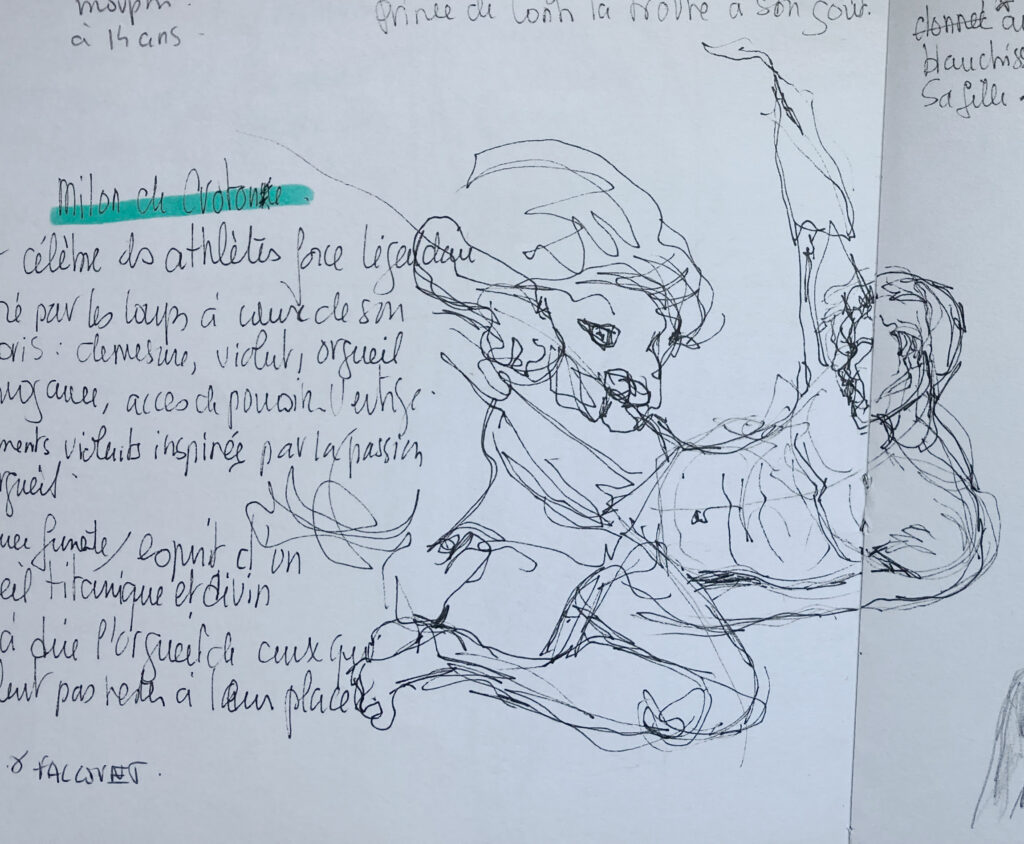 à 14 ans
prince de Conti la trouve à son goût.
clonnet
blanchiss
Sa fille
Milon de Crotone.
célèbre ds athlètes force légendaire
ré par les loups à cause de son
bris : demesure, violent, orgueil
rogance, accès de pouvoir. Vertige.
ments violents inspirée par la passion
rgueil.
funeste, esprit d'un
eil titanique et divin
à dire l'orgueil de ceux qui
lent pas rester à leur place
FALCONET.